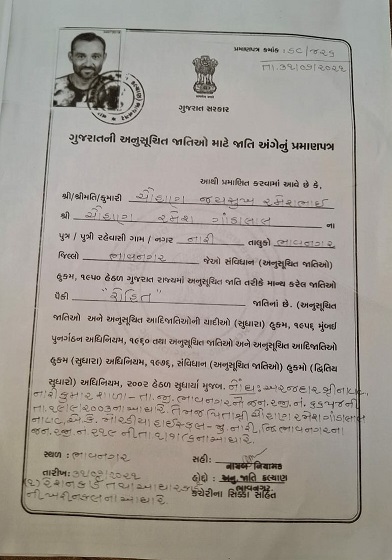 પ્રમાણપત્ર ક્રમાંક : SC/૪૨૬
તા.૩૧/૦૭/૨૦૨૧
ગુજરાત સરકાર
ગુજરાતની અનુસૂચિત જાતિઓ માટે જાતિ અંગેનું પ્રમાણપત્ર
આથી પ્રમાણિત કરવામાં આવે છે કે,
શ્રી/શ્રીમતિ/કુમારી ચૌહાણ જયસુખ રમેશભાઈ
શ્રી ચૌહાણ રમેશ ગાંડાલાલ ના
પુત્ર / પુત્રી રહેવાસી ગામ / નગર નારી તાલુકો ભાવનગર
જિલ્લો ભાવનગર જેઓ સંવિધાન (અનુસૂચિત જાતિઓ)
હુકમ, ૧૯૫૦ હેઠળ ગુજરાત રાજ્યમાં અનુસૂચિત જાતિ તરીકે માન્ય કરેલ જાતિઓ
પૈકી "રોહિત" જાતિનાં છે. (અનુસૂચિત
જાતિઓ અને અનુસૂચિત આદિજાતિઓની યાદીઓ (સુધારા) હુકમ, ૧૯૫૬ મુંબઈ
પુનર્ગઠન અધિનિયમ, ૧૯૬૦ તથા અનુસૂચિત જાતિઓ અને અનુસૂચિત આદિજાતિઓ
હુકમ (સુધારા) અધિનિયમ, ૧૯૭૬, સંવિધાન (અનુસૂચિત જાતિઓ) હુકમો (દ્વિતિય
સુધારો) અધિનિયમ, ૨૦૦૨ હેઠળ સુધાર્યા મુજબ. નોંધ: અરજદારશ્રીના
નારી કુમાર શાળા - તા.જી. ભાવનગરના જન.રજી.નં.
ના આધારે. તેમજ પિતાશ્રી ચૌહાણ રમેશ ગાંડાલાલ
હાઈસ્કૂલ નારી, જિ.ભાવનગરના
જન.રજી.નં
સ્થળ : ભાવનગર
સહી:
નાયબ નિયામક
તારીખ: ૩૧/૦૭/૨૦૨૧
હોદ્દો : અનુ. જાતિ કલ્યાણ
ભાવનગર
કચેરીના સિક્કા સહિત
(૨) રેશનકાર્ડ તથા આધારકાર્ડ
ની ખરીનકલના આધારે.